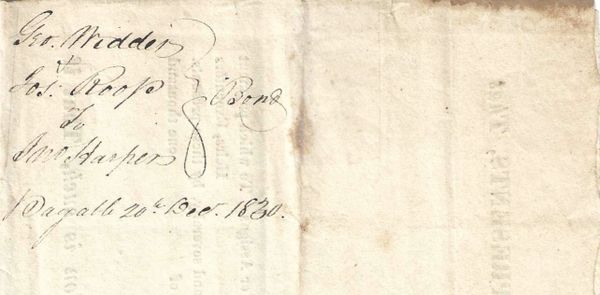 Geo. Widder
&
Jos. Roop } Bond
To
Jno Harper
Payable 20th Dec. 1830.